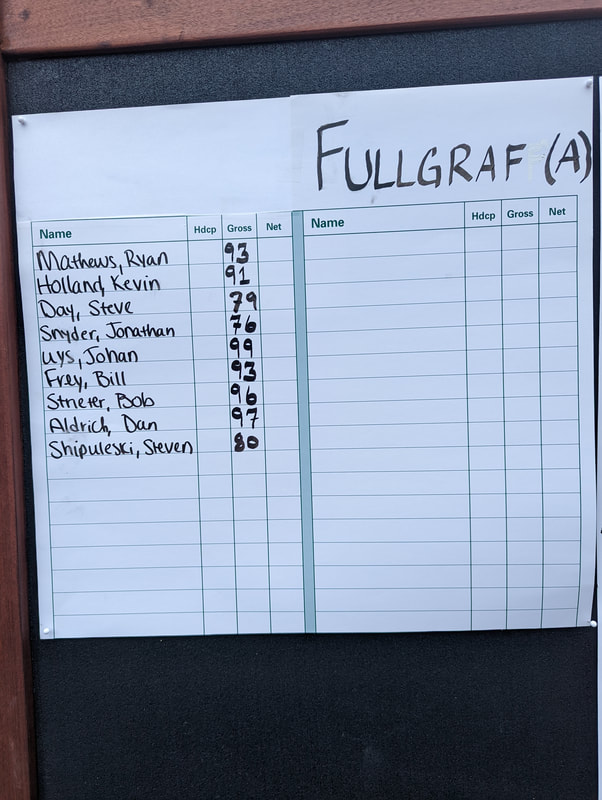 FULLGRAF (A)
Name Hdcp Gross Net Name Hdcp Gross Net
Mathews, Ryan 93
Holland, Kevin 91
Day, Steve 79
Snyder, Jonathan 76
Uys, Johan 99
Frey, Bill 93
Streter, Bob 96
Aldrich, Dan 97
Shipuleski, Steven 80